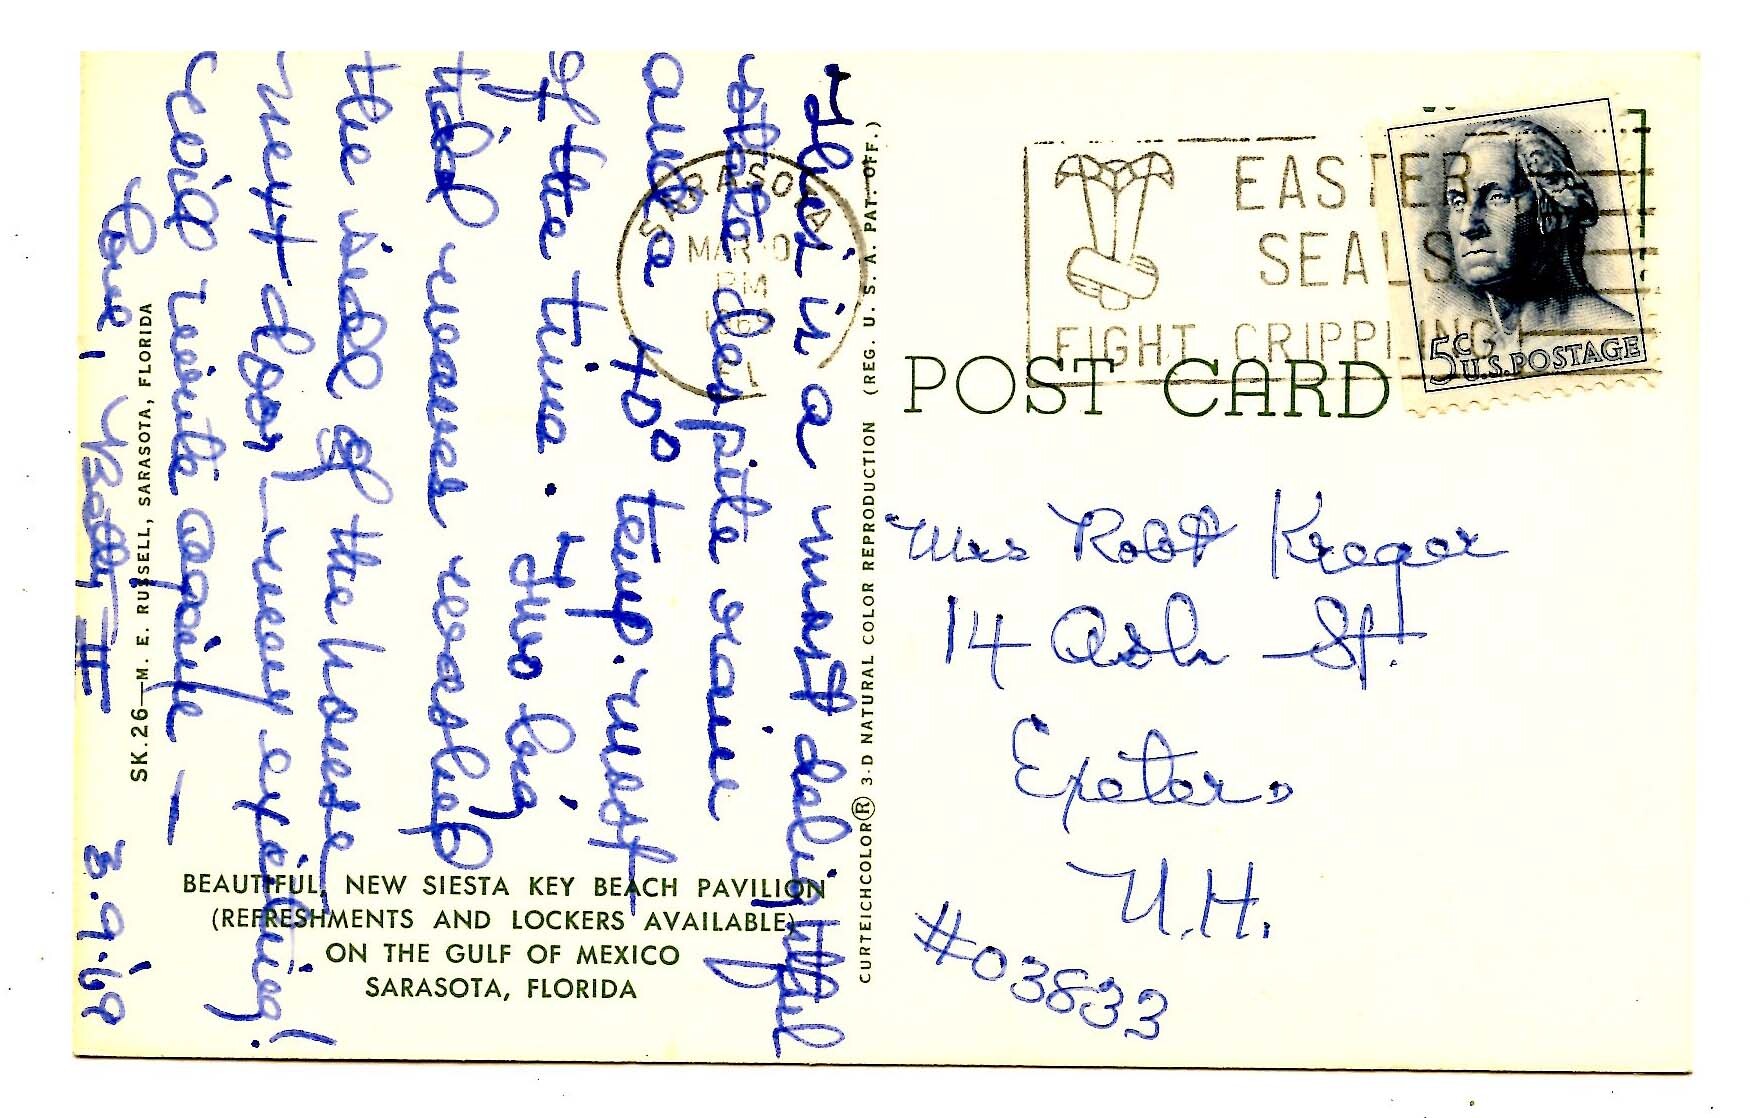 This is a most delightful
state despite rain
and a 40° temp. most
of the time. Two big
tidal waves washed
the side of the house
next door — very exciting!
will write again —
Love, Betty III 3.9.'69
SK.26—M. E. RUSSELL, SARASOTA, FLORIDA
BEAUTIFUL, NEW SIESTA KEY BEACH PAVILION
(REFRESHMENTS AND LOCKERS AVAILABLE)
ON THE GULF OF MEXICO
SARASOTA, FLORIDA
CURTEICHCOLOR® 3-D NATURAL COLOR REPRODUCTION (REG. U. S. A. PAT. OFF.)
SARASOTA
MAR
PM
EASTER
SEALS
FIGHT CRIPPLING
5c U.S. POSTAGE
POST CARD
Mrs Robt Kroger
14 Ash St.
Exeter,
N.H.
#03833